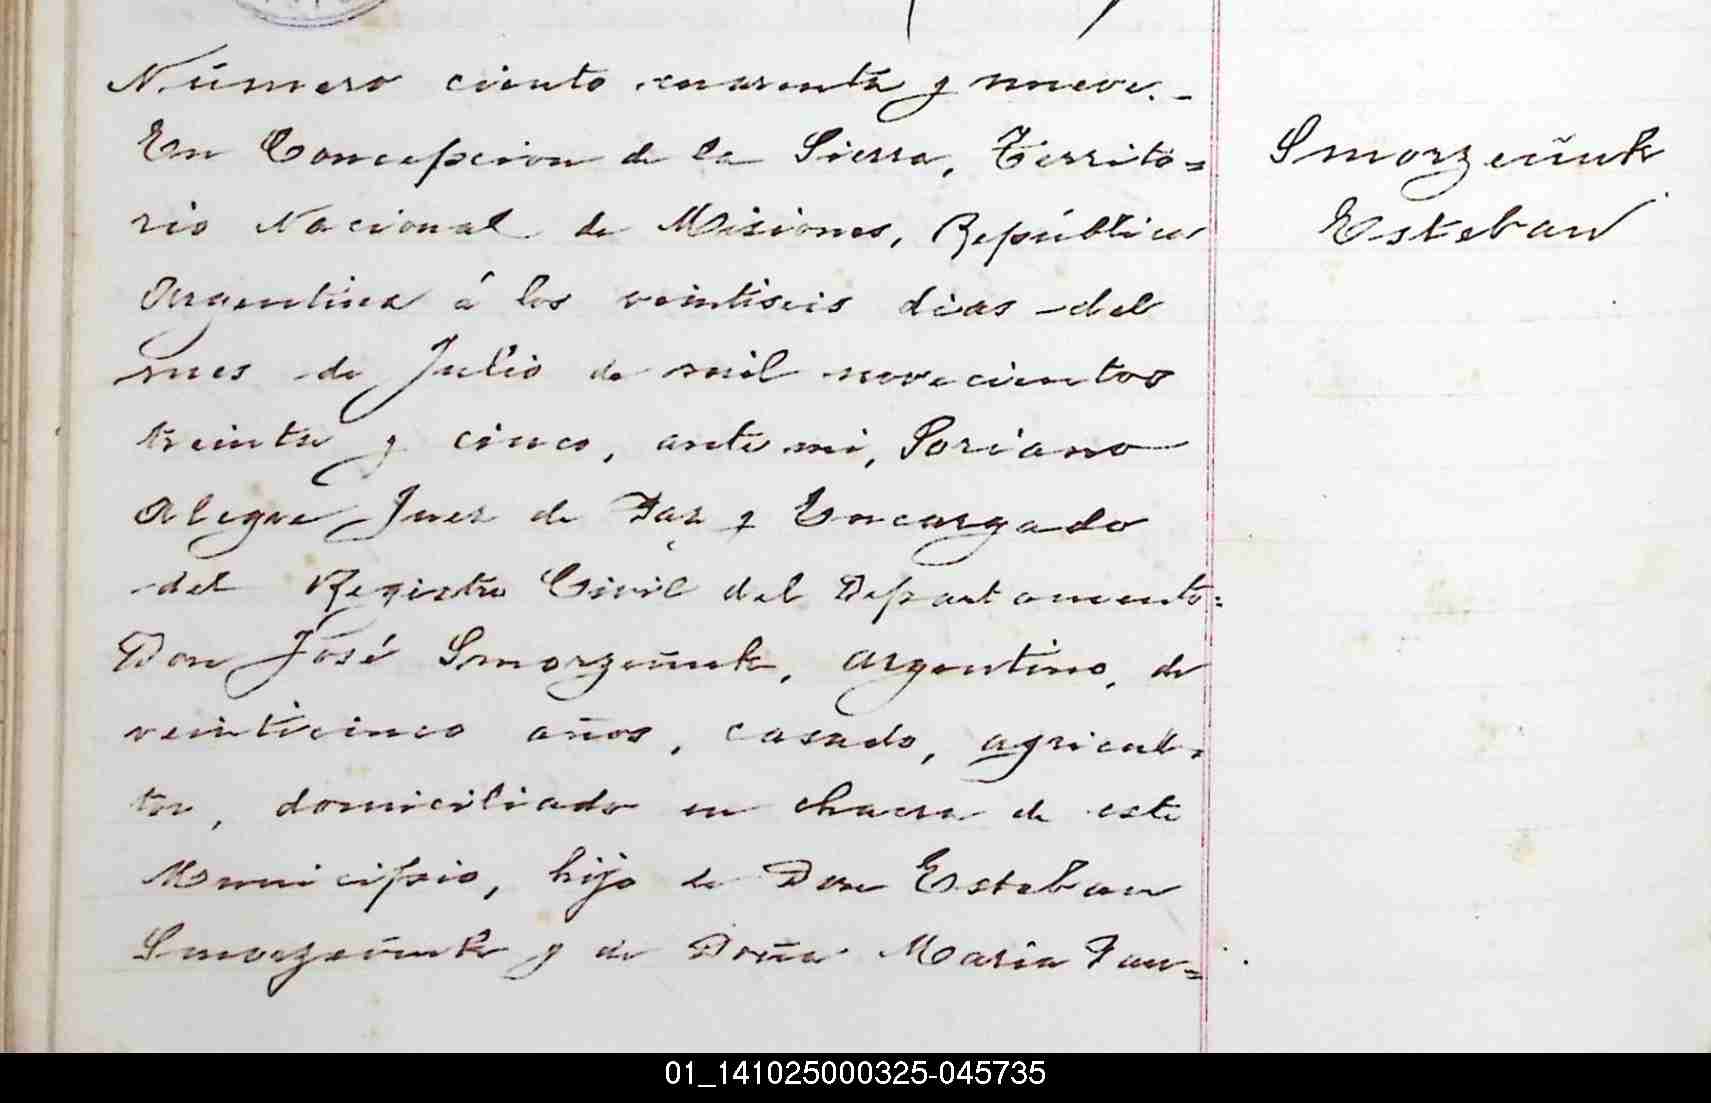 Número ciento cuarenta y nueve.-
En Concepcion de la Sierra, Territo=
rio Nacional de Misiones, República
Argentina á los veintiseis dias del
mes de Julio de mil novecientos
treinta y cinco, ante mi, Soriano
Alegre Juez de Paz y Encargado
del Registro Civil del Departamento=
Don José Smorzeñuk, argentino, de
veinticinco años, casado, agricul=
tor, domiciliado en chacra de este
Municipio, hijo de Don Esteban
Smorzeñuk y de Doña Maria
Smorzeñuk
Esteban
01_141025000325-045735